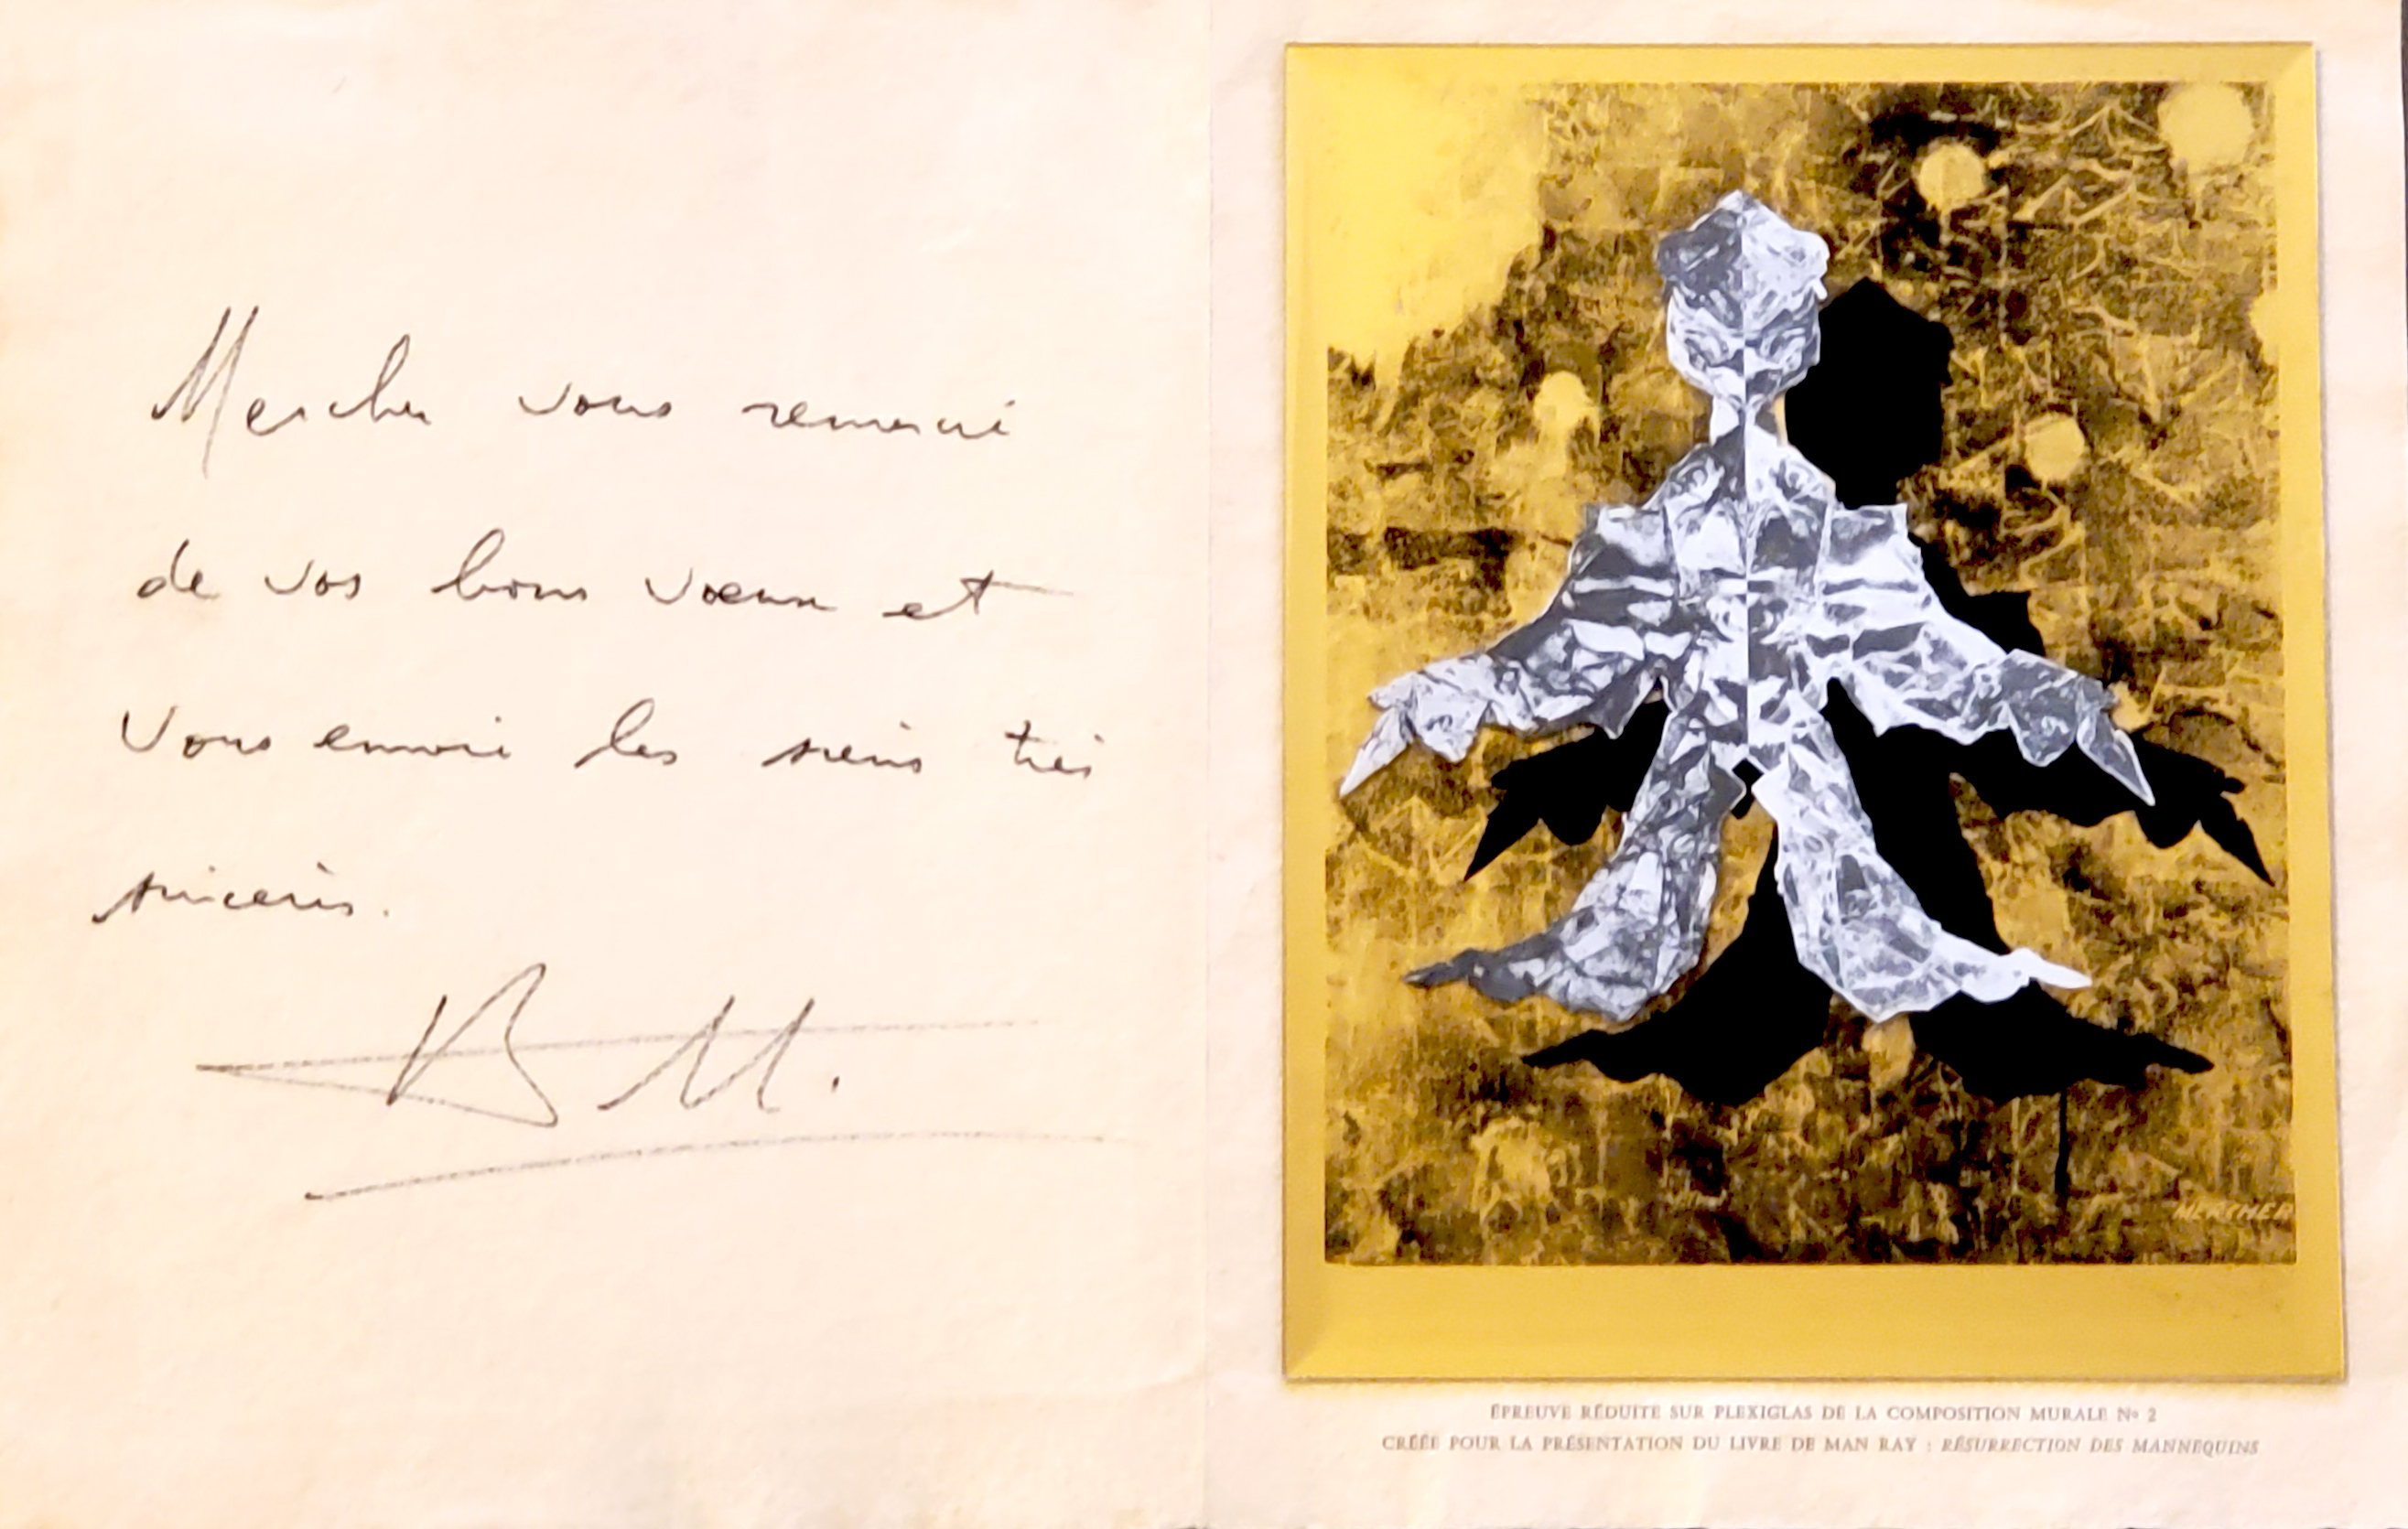 Mercher vous remercie
de vos bons vœux et
vous envoie les siens très
sincères.
B M.
MERCHER
ÉPREUVE RÉDUITE SUR PLEXIGLAS DE LA COMPOSITION MURALE Nº 2
CRÉÉE POUR LA PRÉSENTATION DU LIVRE DE MAN RAY : RÉSURRECTION DES MANNEQUINS